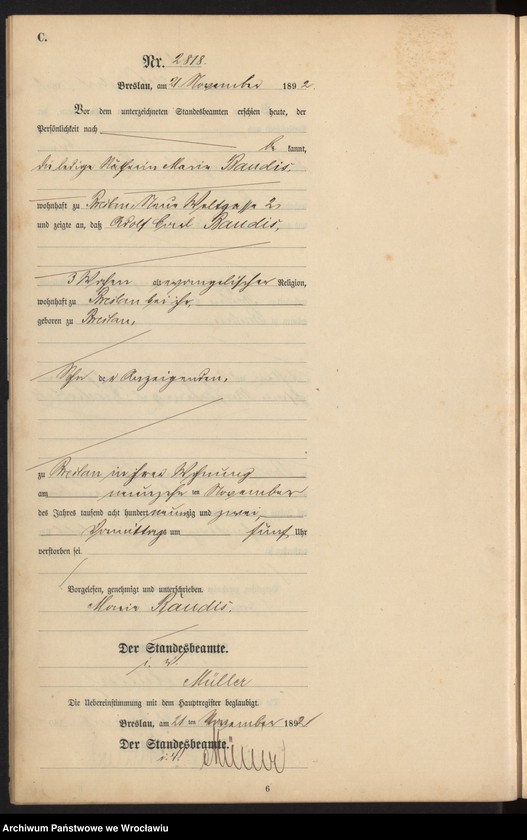 C.
Nr. 2818.
Breslau, am 21 November 1892.
Vor dem unterzeichneten Standesbeamten erschien heute, der
Persönlichkeit nach
be kannt,
die ledige Näherin Marie Baudis,
wohnhaft zu Breslau, Neue Weltgasse 2,
und zeigte an, daß Adolf Carl Baudis,
3 Wochen alt, evangelischer Religion,
wohnhaft zu Breslau bei ihr,
geboren zu Breslau,
Sohn der Anzeigenden,
zu Breslau in ihrer Wohnung
am neunzehn ten November
des Jahres tausend acht hundert neunzig und zwei,
Vormittags um fünf Uhr
verstorben sei.
Vorgelesen, genehmigt und unterschrieben.
Marie Baudis.
Der Standesbeamte.
i. V.
Müller
Die Uebereinstimmung mit dem Hauptregister beglaubigt.
Breslau, am 21 ten November 1892
Der Standesbeamte.
i. V. Müller
6
Archiwum Państwowe we Wrocławiu